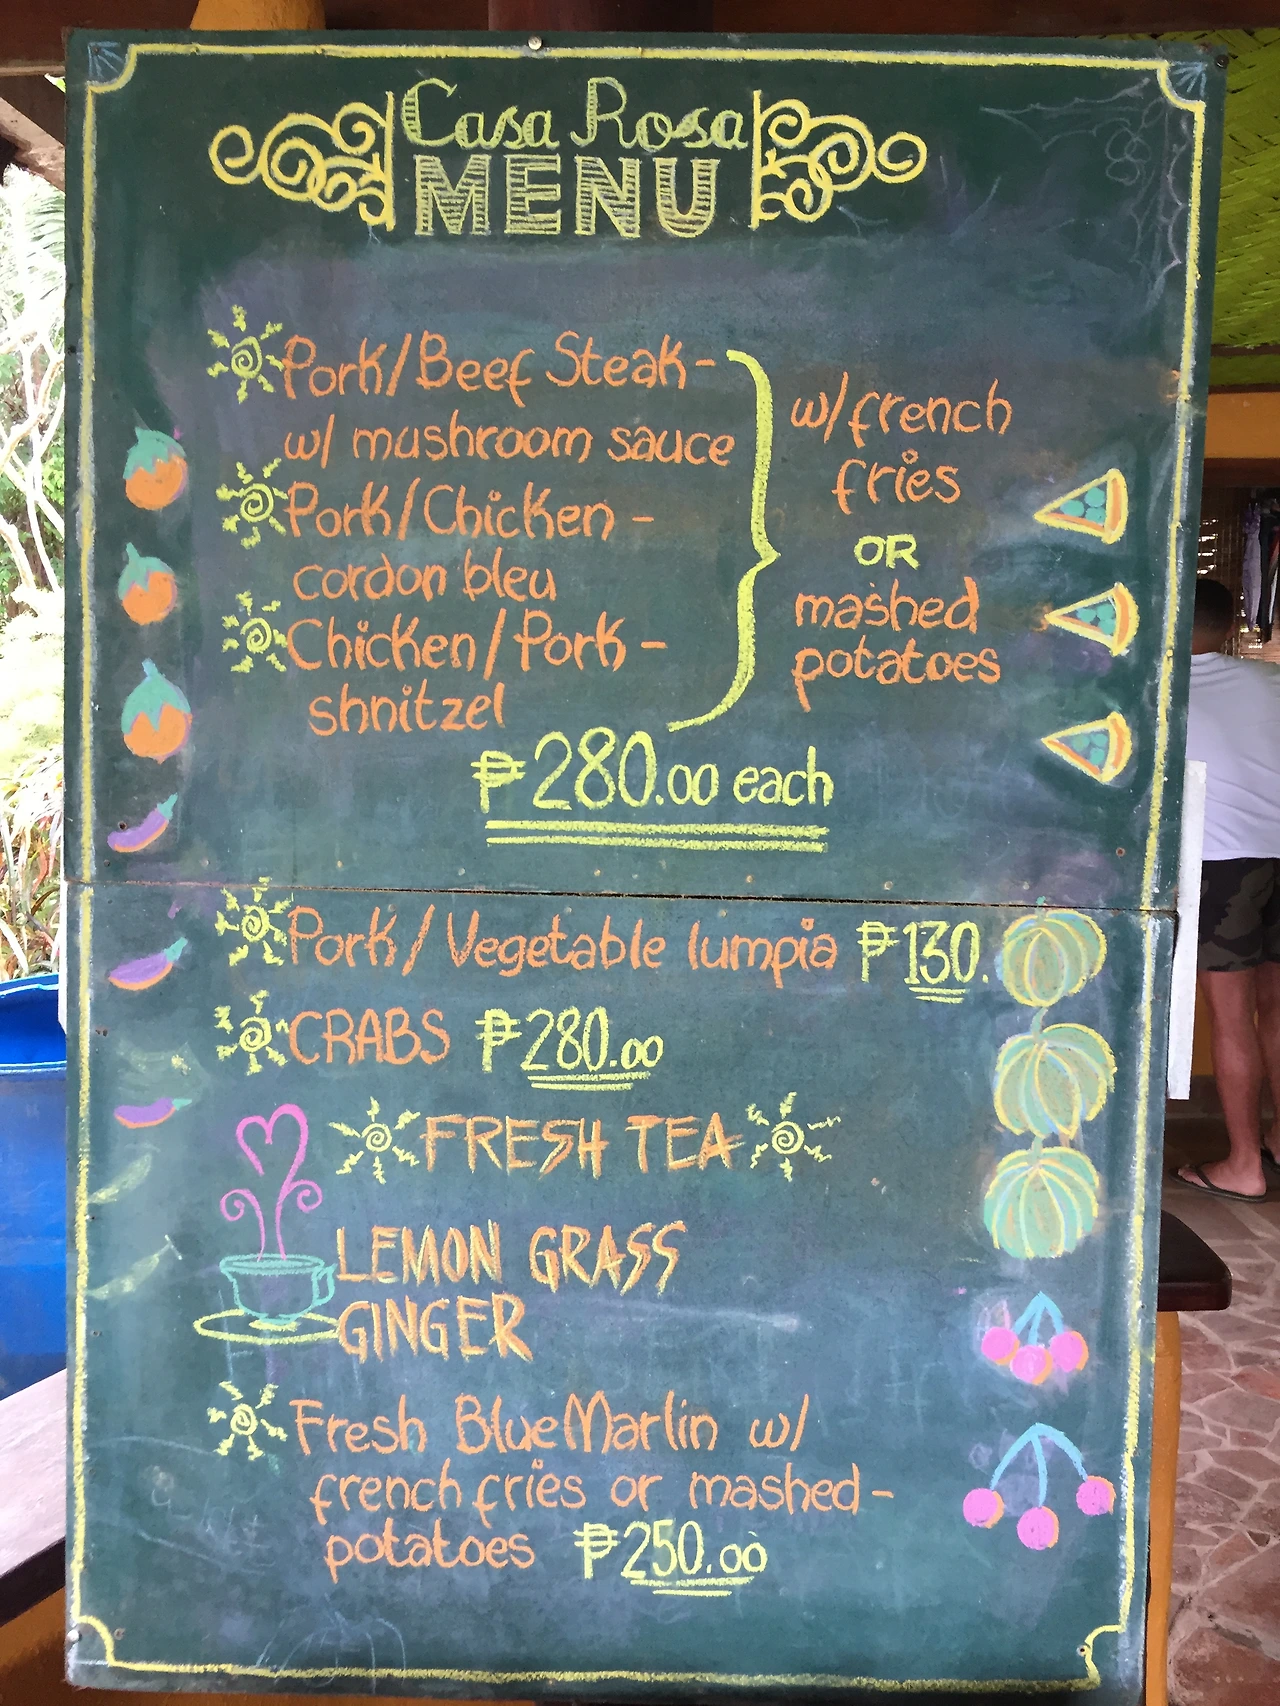 Casa Rosa
MENU
Pork/Beef Steak-
w/ mushroom sauce
Pork/Chicken -
cordon bleu
Chicken/Pork -
shnitzel
w/french
fries
OR
mashed
potatoes
₱280.00 each
Pork/Vegetable lumpia ₱130.
CRABS ₱280.00
FRESH TEA
LEMON GRASS
GINGER
Fresh Blue Marlin w/
french fries or mashed-
potatoes ₱250.00